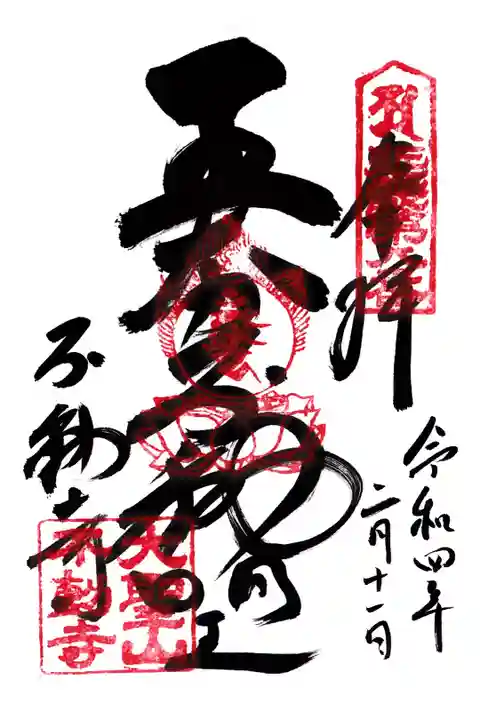 奉拝
令和四年
二月十一日
五大
明王
不動寺
大聖山
不動寺